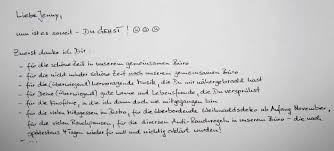 Liebe Jenny,
nun ist es soweit - DU GEHST! ☹☹☹
Zuerst danke ich Dir...
- für die schöne Zeit in unserem gemeinsamen Büro
- für die nicht minder schöne Zeit nach unserem gemeinsamen Büro
- für die (überwiegend) hervorragende Musik, die Du mir nähergebracht hast
- für Deine (überwiegend) gute Laune und Lebensfreude, die Du versprühst
- für die Kinofilme, in die ich dann doch nie mitgegangen bin
- für die vielen Mittagessen im Bistro, für die überbordende Weihnachtsdeko ab Anfang November,
für die vielen Rauchpausen, für die diversen Anti-Rauchregeln in unserem Büro - die nach
spätestens 4 Tagen wieder für null und nichtig erklärt wurden!
- ...